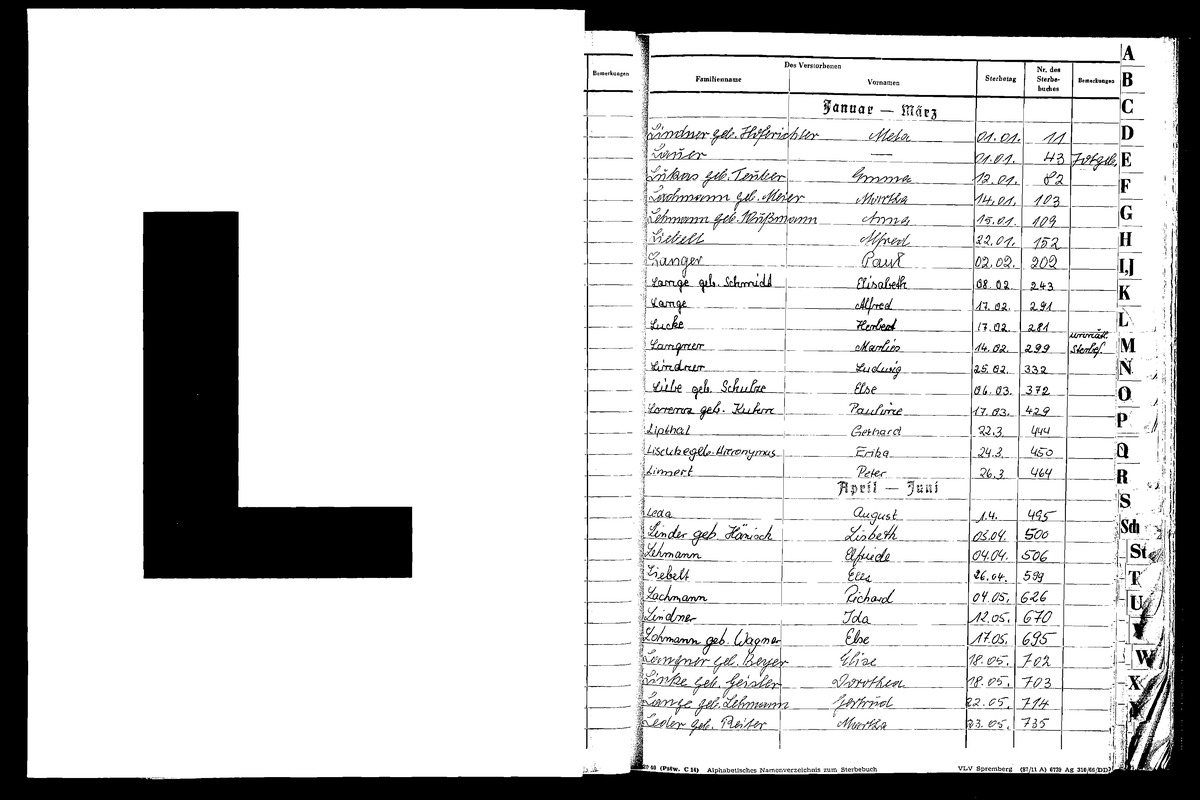 L
Bemerkungen
Des Verstorbenen
Familienname Vornamen Sterbetag Nr. des Sterbe- buches Bemerkungen
Januar — März
Lindner geb. Hoferichter Meta 01.01. 11
Lauer — 01.01. 43 Totgeb.
Lukas geb. Emma 12.01. 82
Lachmann geb. Meier Martha 14.01. 103
Lehmann geb. Anna 15.01. 109
Liebelt Alfred 22.01. 152
Langer Paul 02.02. 202
Lange geb. Schmidt Elisabeth 08.02. 243
Lange Alfred 17.02. 291
Lucke Herbert 17.02. 281
Langner Marlies 14.02. 299
Lindner Ludwig 25.02. 332
Liebe geb. Schulze Else 06.03. 372
Lorenz geb. Kuhn Pauline 17.03. 429
Lipthal Gerhard 22.3. 444
Lischke geb. Hieronymus Erika 24.3. 450
Linnert Peter 26.3. 464
April — Juni
Leda August 1.4. 495
Linder geb. Hänisch Lisbeth 03.04. 500
Lehmann Elfriede 04.04. 506
Liebelt 26.04. 599
Lachmann Richard 04.05. 626
Lindner Ida 12.05. 670
Lohmann geb. Wagner Else 17.05. 695
Langner geb. Beyer Elise 18.05. 702
Linke geb. Geisler Dorothea 18.05. 703
Lange geb. Lehmann Gertrud 22.05. 714
Leder geb. Reiter Martha 23.05. 735
(Pstw. C 14) Alphabetisches Namenverzeichnis zum Sterbebuch VLV Spremberg (87/11 A) 6739 Ag 310/66/DD
A
B
C
D
E
F
G
H
I,J
K
L
M
N
O
P
Q
R
S
Sch
St
T
U
V
W
X